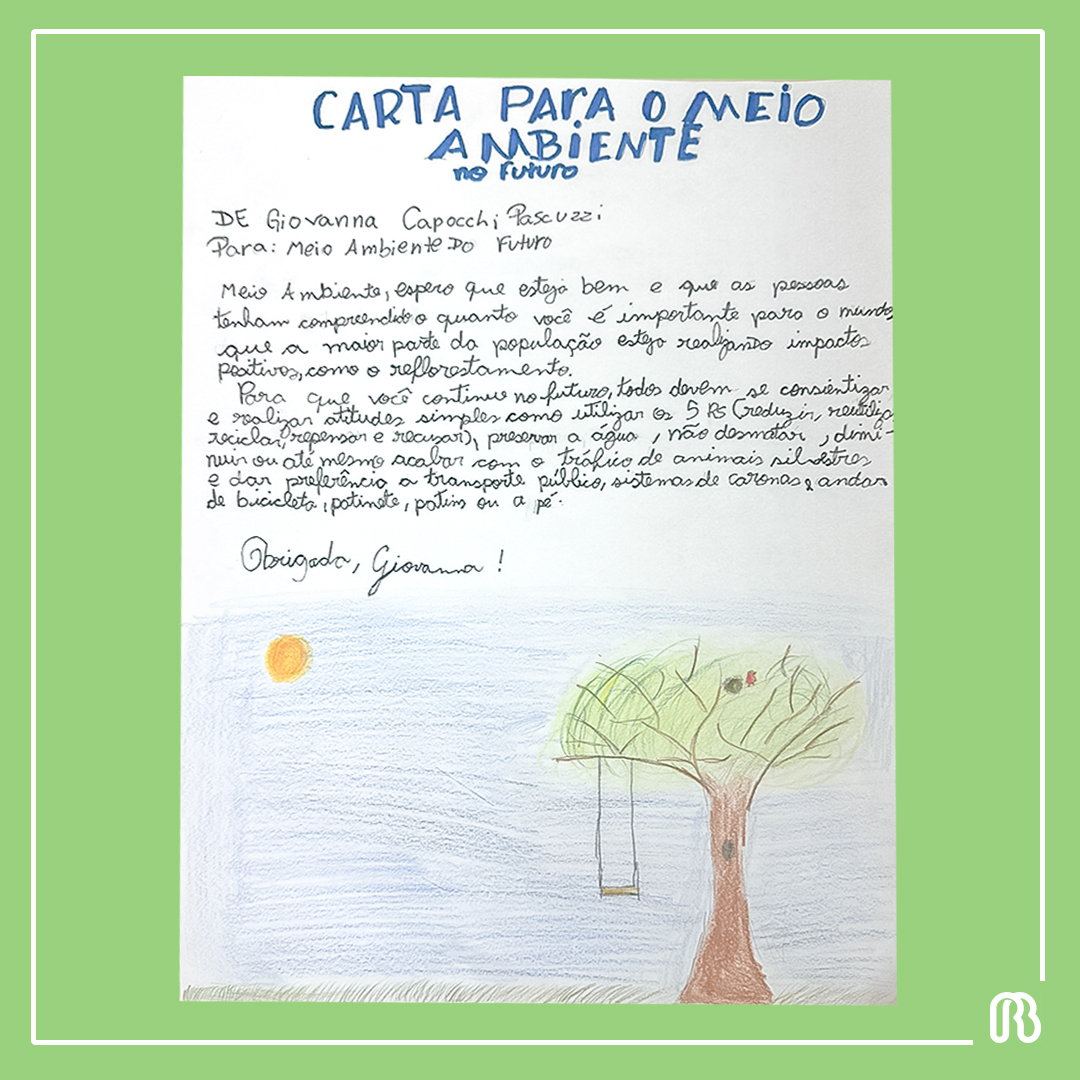 CARTA PARA O MEIO
AMBIENTE
no futuro
DE Giovanna Capocchi Pascuzzi
Para: Meio Ambiente Do Futuro
Meio Ambiente, espero que esteja bem e que as pessoas
tenham compreendido o quanto você é importante para o mundo,
que a maior parte da população esteja realizando impactos
positivos, como o reflorestamento.
Para que você continue no futuro, todos devem se conscientizar
e realizar atitudes simples como utilizar os 5 Rs (reduzir, reutilizar
reciclar, repensar e recusar), preservar a água, não desmatar, dimi-
nuir ou até mesmo acabar com o tráfico de animais silvestres
e dar preferência a transporte público, sistemas de caronas, andar
de bicicleta, patinete, patins ou a pé.
Obrigada, Giovanna!